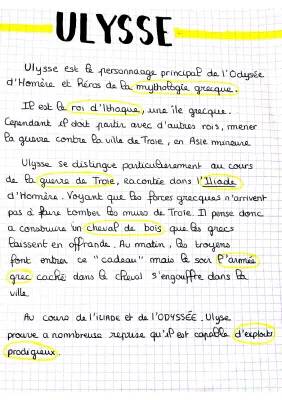 ULYSSE
Ulysse est le personnage principal de l'Odysée
d'Homère et Héros de la mythologie grecque.
Il est le roi d'Ithaque, une île grecque.
Cependant il doit partir avec d'autres rois, mener
la guerre contre la ville de Troie, en Asie mineure
Ulysse se distingue particulièrement au cours
de la guerre de Troie, racontée dans l'Iliade
d'Homère. Voyant que les forces grecques n'arrivent
pas à faire tomber les murs de Troie. Il pense donc
a construire un cheval de bois que les grecs
laissent en offrande. Au matin, les troyens
font entrer ce "cadeau" mais le soir l'armée
grec caché dans le cheval s'engouffre dans la
ville.
Au cours de l'ILIADE et de l'ODYSSÉE. Ulyse
prouve a nombreuse reprise qu'il est capable d'exploits
prodigieux.